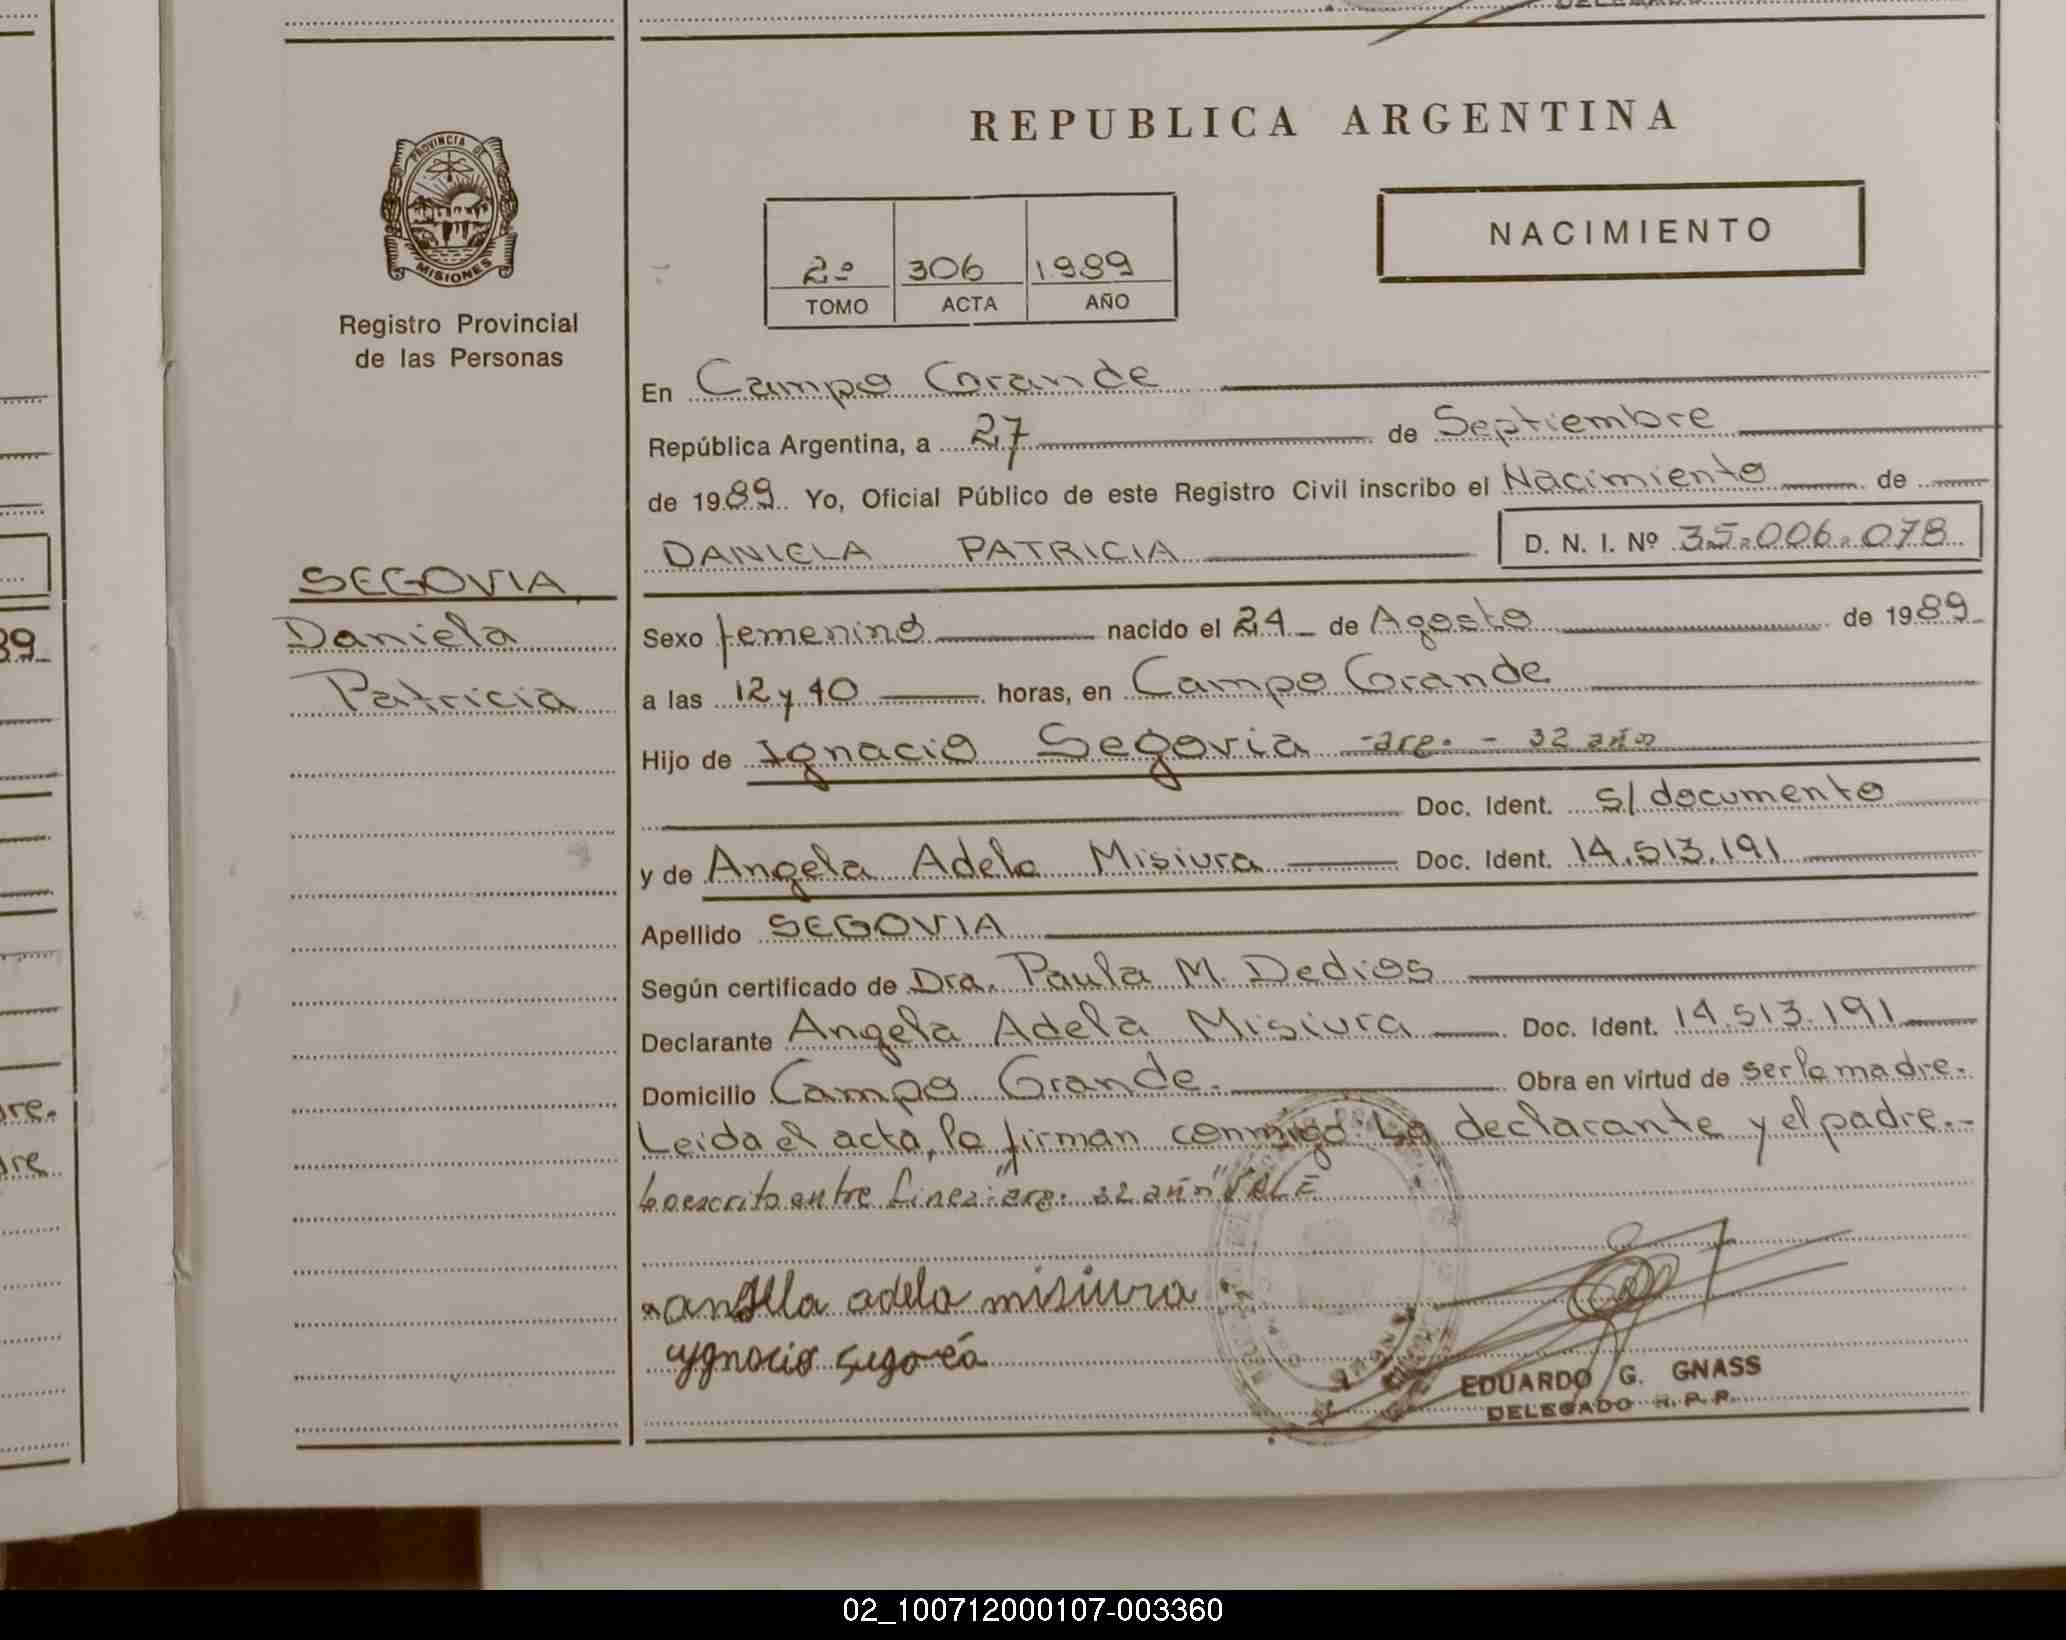 REPUBLICA ARGENTINA
PROVINCIA DE
MISIONES
Registro Provincial
de las Personas
NACIMIENTO
2º 306 1989
TOMO ACTA AÑO
En Campo Grande
República Argentina, a 27 de Septiembre
de 1989 Yo, Oficial Público de este Registro Civil inscribo el Nacimiento de
DANIELA PATRICIA D. N. I. Nº 35.006.078
SEGOVIA
Daniela
Patricia
Sexo femenino nacido el 24 de Agosto de 1989
a las 12 y 40 horas, en Campo Grande
Hijo de Ignacio Segovia - arg. - 32 años
Doc. Ident. s/documento
y de Angela Adela Misiura Doc. Ident. 14.513.191
Apellido SEGOVIA
Según certificado de Dra. Paula M. Dedios
Declarante Angela Adela Misiura Doc. Ident. 14.513.191
Domicilio Campo Grande. Obra en virtud de ser la madre.
Leida el acta, la firman conmigo La declarante y el padre.-
Lo escrito entre linea: "arg. 32 años" VALE
angela adela misiura
ygnacio segovia
EDUARDO G. GNASS
DELEGADO R.P.P.
39
dre.
dre
02_100712000107-003360